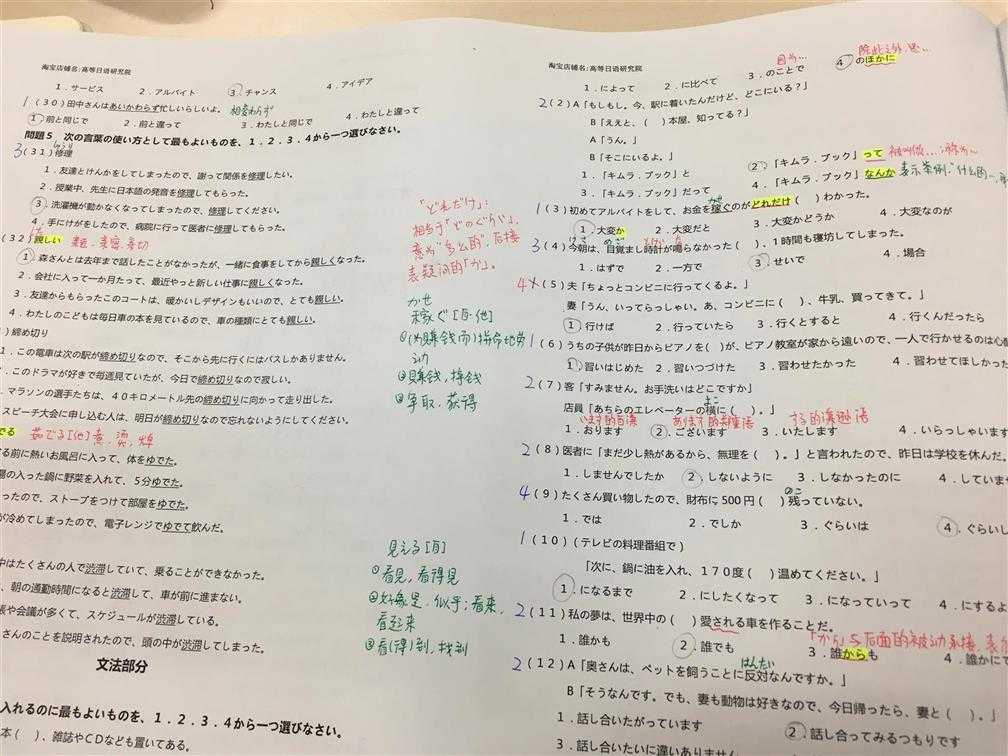 淘宝店铺名:高等日语研究院
1．サービス 2．アルバイト 3．チャンス 4．アイデア
1（30）田中さんはあいかわらず忙しいらしいよ。 相変わらず
1前と同じで 2．前と違って 3．わたしと同じで 4．わたしと違って
問題5 次の言葉の使い方として最もよいものを、1．2．3．4から一つ選びなさい。
3（31）修理
1．友達とけんかをしてしまったので、謝って関係を修理したい。
2．授業中、先生に日本語の発音を修理してもらった。
3．洗濯機が動かなくなってしまったので、修理してください。
4．手にけがをしたので、病院に行って医者に修理してもらった。
（32）親しい 親密、亲切
1．森さんとは去年まで話したことなかったが、一緒に食事をしてから親しくなった。
2．会社に入って一か月たって、最近やっと新しい仕事に親しくなった。
3．友達からもらったこのコートは、暖かいしデザインもいいので、とても親しい。
4．わたしのこどもは毎日車の本を見ているので、車の種類にとても親しい。
）締め切り
1．この電車は次の駅が締め切りなので、そこから先に行くにはバスしかありません。
．このドラマが好きで毎週見ていたが、今日で締め切りなので寂しい。
．マラソンの選手たちは、40キロメートル先の締め切りに向かって走り出した。
スピーチ大会に申し込む人は、明日が締め切りなので忘れないようにしてください。
でる 茹でる[他]煮，烫，焯
する前に熱いお風呂に入って、体をゆでた。
湯の入った鍋に野菜を入れて、5分ゆでた。
ったので、ストーブをつけて部屋をゆでた。
が冷めてしまったので、電子レンジでゆでて飲んだ。
中はたくさんの人で渋滞していて、乗ることができなかった。
、朝の通勤時間になると渋滞して、車が前に進まない。
長や会議が多くて、スケジュールが渋滞している。
さんのことを説明されたので、頭の中が渋滞してしまった。
文法部分
入れるのに最もよいものを、1．2．3．4から一つ選びなさい。
本（ ）、雑誌やCDなども置いてある。
「どれだけ」:
相当于「どのぐらい」,
意为"多么的",后接
表疑问的「か」。
かせ
稼ぐ[自・他]
①(为赚钱而)拼命地劳
动
②赚钱，挣钱
③争取．获得
見える[自]
①看見，看得見
②好像是．似乎；看来，
看起来
③看(得)到，找到
淘宝店铺名:高等日语研究院
因为… 除此之外，还…
1．によって 2．に比べて 3．のことで 4 のほかに
2（2）A「もしもし。今、駅に着いたんだけど、どこにいる？」
B「ええと、（ ）本屋、知ってる？」
A「うん。」
B「そこにいるよ。」
1．「キムラ．ブック」と 2．「キムラ．ブック」って 被叫做…；称为…
3．「キムラ．ブック」だって 4．「キムラ．ブック」なんか 表示举例:"什么的…
1（3）初めてアルバイトをして、お金を稼ぐのがどれだけ（ ）わかった。
1大変か 2．大変だと 3．大変かどうか 4．大変なのが
3（4）今朝は、目覚まし時計が鳴らなかった（ ）、1時間も寝坊してしまった。
1．はずで 2．一方で 3．せいで 4．場合
4（5）夫「ちょっとコンビニに行ってくるよ。」
妻「うん、いってらっしゃい。あ、コンビニに（ ）、牛乳、買ってきて。」
1．行けば 2．行っていたら 3．行くとすると 4．行くんだったら
1（6）うちの子供が昨日からピアノを（ ）が、ピアノ教室が家から遠いので、一人で行かせるのは心配
1．習いはじめた 2．習いつづけた 3．習わせたかった 4．習わせてほしかった
2（7）客「すみません。お手洗いはどこですか」
店員「あちらのエレベーターの横に（ ）。」
います的自谦 あります的郑重语 する的谦逊语
1．おります 2．ございます 3．いたします 4．いらっしゃいます
2（8）医者に「まだ少し熱があるから、無理を（ ）。」と言われたので、昨日は学校を休んだ。
1．しませんでしたか 2．しないように 3．しなかったのに 4．していま
4（9）たくさん買い物したので、財布に500円（ ）残っていない。
1．では 2．でしか 3．ぐらいは 4．ぐらいし
1（10）（テレビの料理番組で）
「次に、鍋に油を入れ、170度（ ）温めてください。」
1．になるまで 2．にしたくなって 3．になっていって 4．にするよ
2（11）私の夢は、世界中の（ ）愛される車を作ることだ。
「から」与后面的被动承接，表
1．誰かも 2．誰でも 3．誰からも 4．誰かに
2（12）A「奥さんは、ペットを飼うことに反対なんですか。」
B「そうなんです。でも、妻も動物は好きなので、今日帰ったら、妻と（ ）。」
1．話し合いたがっています 2 話し合ってみるつもりです
3．話し合いたいに違いありません